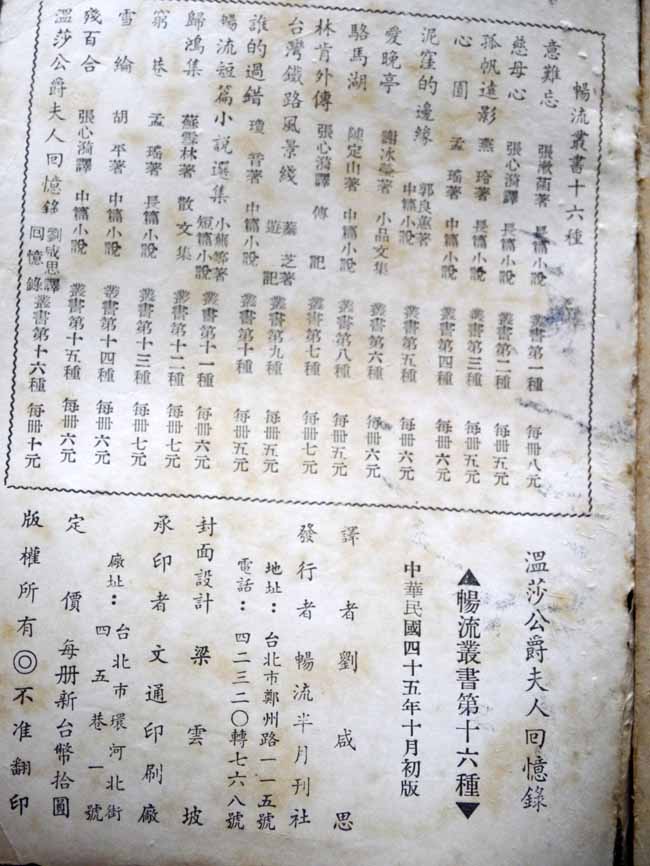 暢流叢書十六種
意難忘 張漱菡著 長篇小說 叢書第一種 每冊八元
慈母心 張心漪譯 長篇小說 叢書第二種 每冊五元
孤帆遠影 燕玲著 長篇小說 叢書第三種 每冊五元
心園 孟瑤著 中篇小說 叢書第四種 每冊六元
泥窪的邊緣 郭良蕙著 中篇小說 叢書第五種 每冊六元
愛晚亭 謝冰瑩著 小品文集 叢書第六種 每冊六元
駱馬湖 陳定山著 中篇小說 叢書第八種 每冊五元
林肯外傳 張心漪譯 傳記 叢書第七種 每冊七元
台灣鐵路風景綫 蔡芝著 遊記 叢書第九種 每冊五元
誰的過錯 瓊著 中篇小說 叢書第十種 每冊五元
暢流短篇小說選集 小 等著 短篇小說 叢書第十一種 每冊六元
歸鴻集 蘇雪林著 散文集 叢書第十二種 每冊七元
窮巷 孟瑤著 長篇小說 叢書第十三種 每冊七元
雪綸 胡平著 中篇小說 叢書第十四種 每冊六元
殘百合 張心漪譯 中篇小說 叢書第十五種 每冊六元
溫莎公爵夫人回憶錄 劉咸思譯 回憶錄 叢書第十六種 每冊十元
溫莎公爵夫人回憶錄
▲暢流叢書第十六種▼
中華民國四十五年十月初版
譯者 劉咸思
發行者 暢流半月刊社
地址：台北市鄭州路一一五號
電話：四二三二〇轉七六八號
封面設計 梁雲坡
承印者 文通印刷廠
廠址：台北市環河北街四五巷一號
定價 每册新台幣拾圓
版權所有◎不准翻印